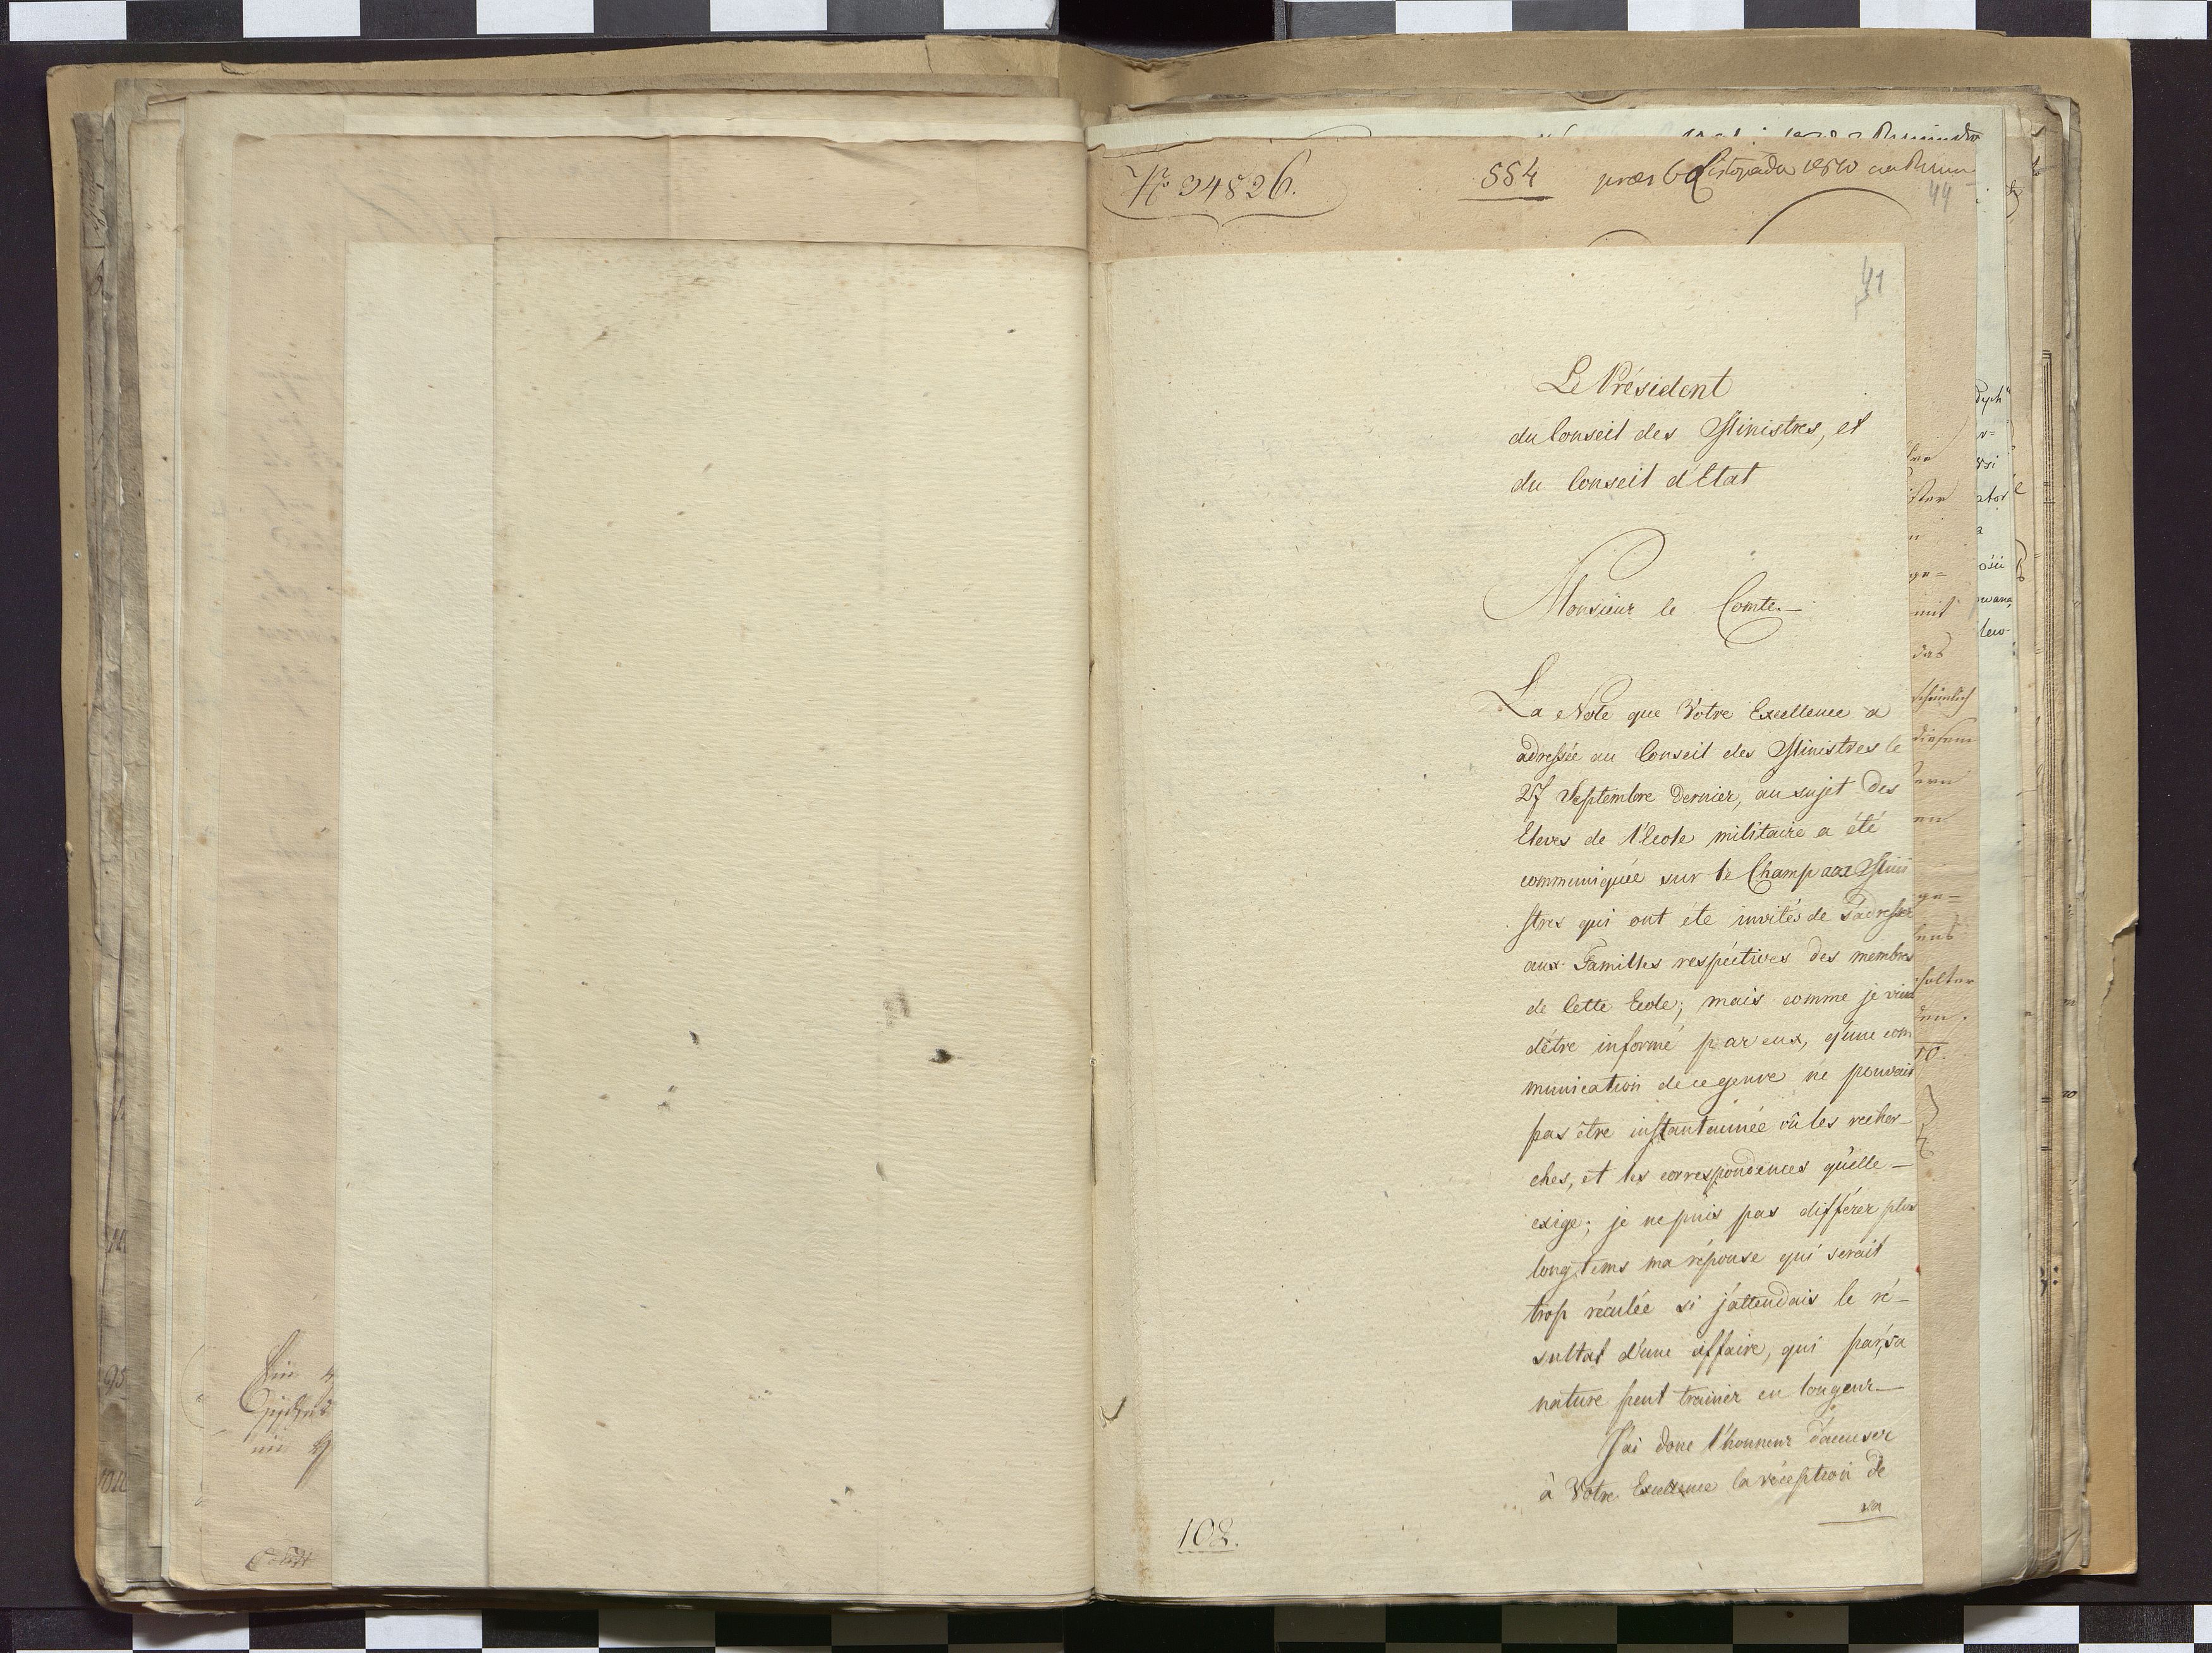 № 34826.
554
44
41
Le Président
du Conseil des Ministres, et
du Conseil d'Etat
Monsieur le Comte.
La Note que Votre Excellence a
adressée au Conseil des Ministres le
27 Septembre dernier, au sujet des
Eleves de l'Ecole militaire a été
communiquée sur le Champ aux Mini
stres qui ont éte invités de s'adresser
aux Familles respéctives des membres
de Cette Ecole; mais comme je viens
d'étre informé par eux, qu'une com
munication de ce genre ne pouvait
pas étre instantannée vû les recher-
ches, et les correspondences qu'elle
exige; je ne puis pas différer plus
longtems ma réponse qui serait
trop réculée si j'attendais le ré-
sultat d'une affaire, qui par sa
nature peut trainer en longeur.
J'ai donc l'honneur d'accuser
à Votre Excellence la réception de
sa
108.